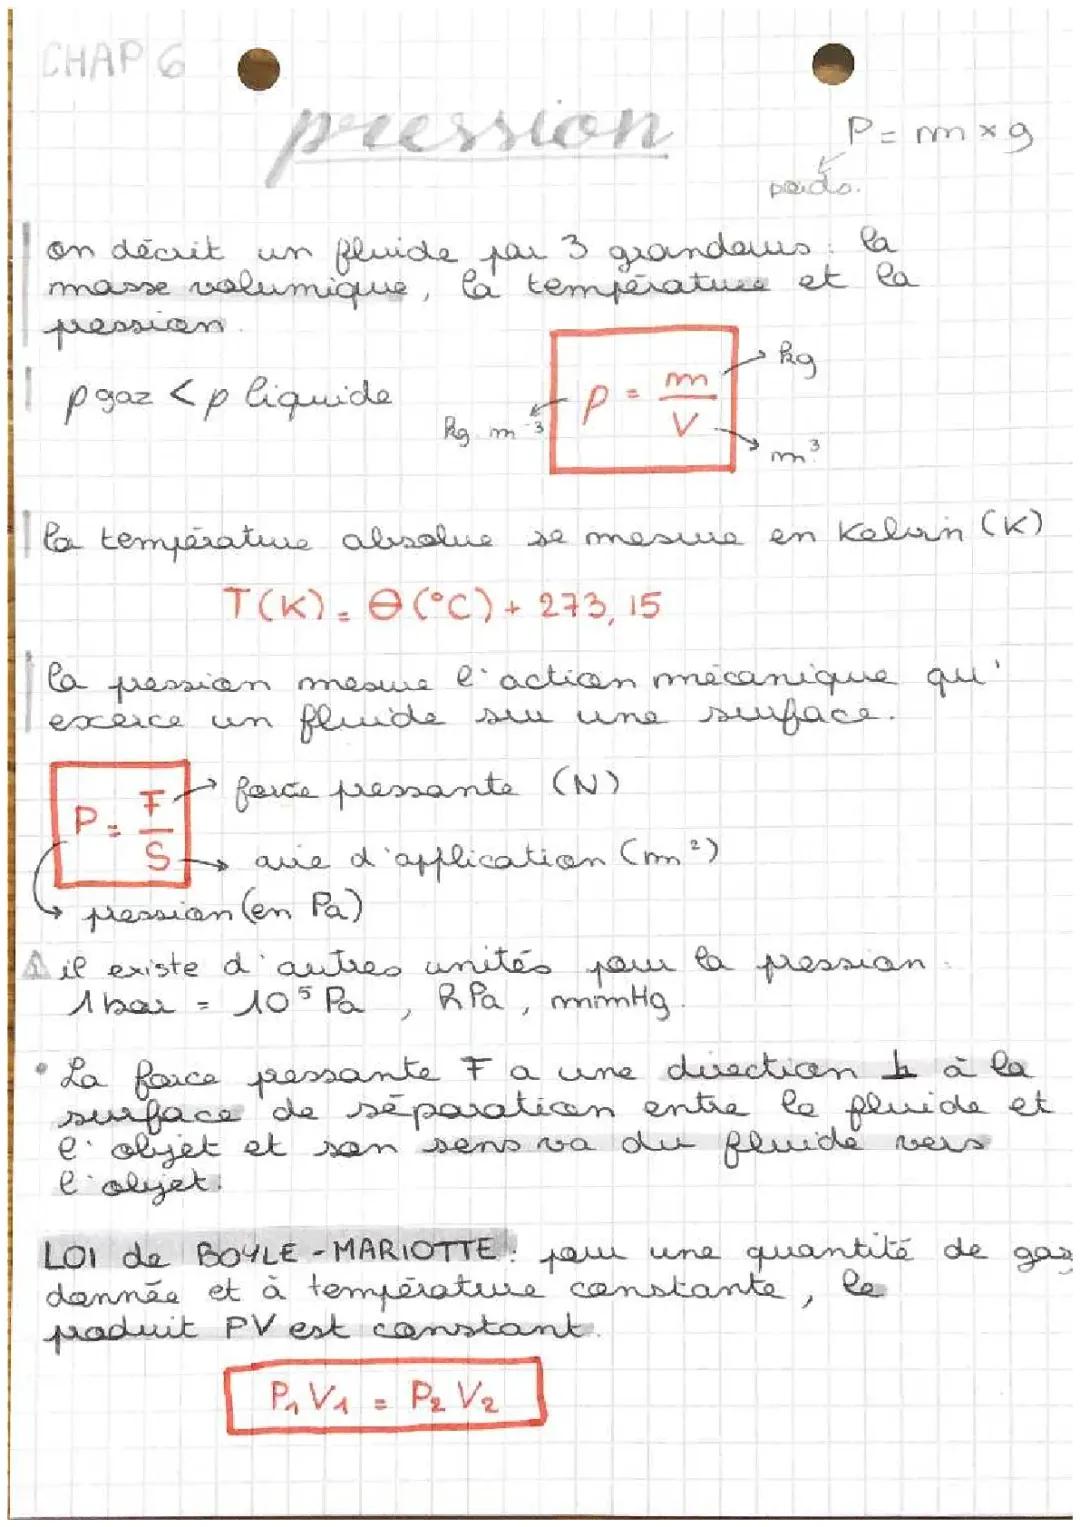 CHAP 6
pression
P = m × g
poids.
on décrit un fluide par 3 grandeurs : la
masse volumique, la température et la
pression.
ρ gaz < ρ liquide
ρ = m/V
kg
kg.m⁻³
m³
la température absolue se mesure en Kelvin (K)
T(K) = θ(°C) + 273,15
la pression mesure l'action mécanique qu'
exerce un fluide sur une surface.
P = F/S
force pressante (N)
aire d'application (m²)
pression (en Pa)
⚠ il existe d'autres unités pour la pression :
1 bar = 10⁵ Pa , hPa , mmHg.
• La force pressante F a une direction ⊥ à la
surface de séparation entre le fluide et
l'objet et son sens va du fluide vers
l'objet.
LOI de BOYLE-MARIOTTE : pour une quantité de gaz
donnée et à température constante, le
produit PV est constant.
P₁V₁ = P₂V₂